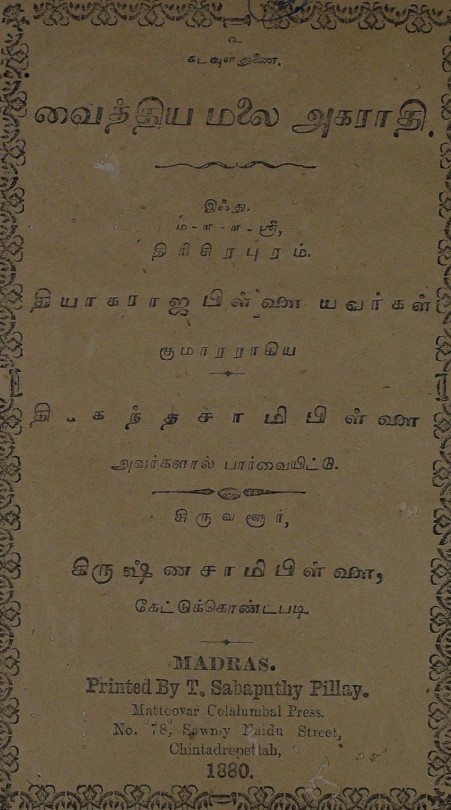 உ
கடவுள் துணை.
வைத்திய மலை அகராதி.
இஃது.
ம-ள-ள-ஸ்ரீ,
திரிசிரபுரம்.
தியாகராஜபிள்ளை யவர்கள்
குமாரராகிய
தி. கந்தசாமிபிள்ளை
அவர்களால் பார்வையிட்டு.
சிருவளூர்,
கிருஷ்ணசாமிபிள்ளை,
கேட்டுக்கொண்டபடி
MADRAS.
Printed By T. Sabaputhy Pillay.
Mattoovar Colalumbal Press.
No. 78, Sawmy Naidu Street,
Chintadrepettah,
1880.